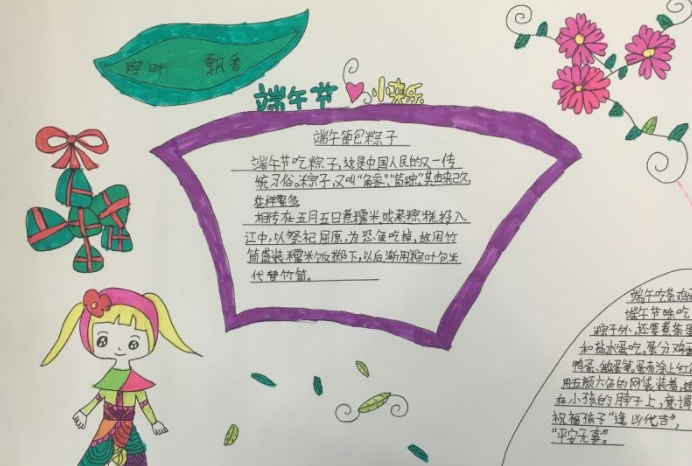 粽叶 飘香
端午节 快乐
端午節包粽子
端午节吃粽子,这是中国人民的又一传
统习俗。粽子,又叫"角黍"、"筒粽"。其由来已久,
花样繁多
相传在五月五日煮糯米或蒸粽糕投入
江中,以祭祀屈原,为恐鱼吃掉,故用竹
筒盛装糯米饭掷下,以后渐用粽叶包米
代替竹筒。
端午吃茶鸡
端午节除吃
粽子外,还要煮茶蛋
和盐水蛋吃。蛋分鸡
鸭蛋、鹅蛋等。蛋壳涂上红
用五颜六色的网袋装着,
在小孩的脖子上,意调
祝福孩子"逢凶代吉",
"平安无事"。